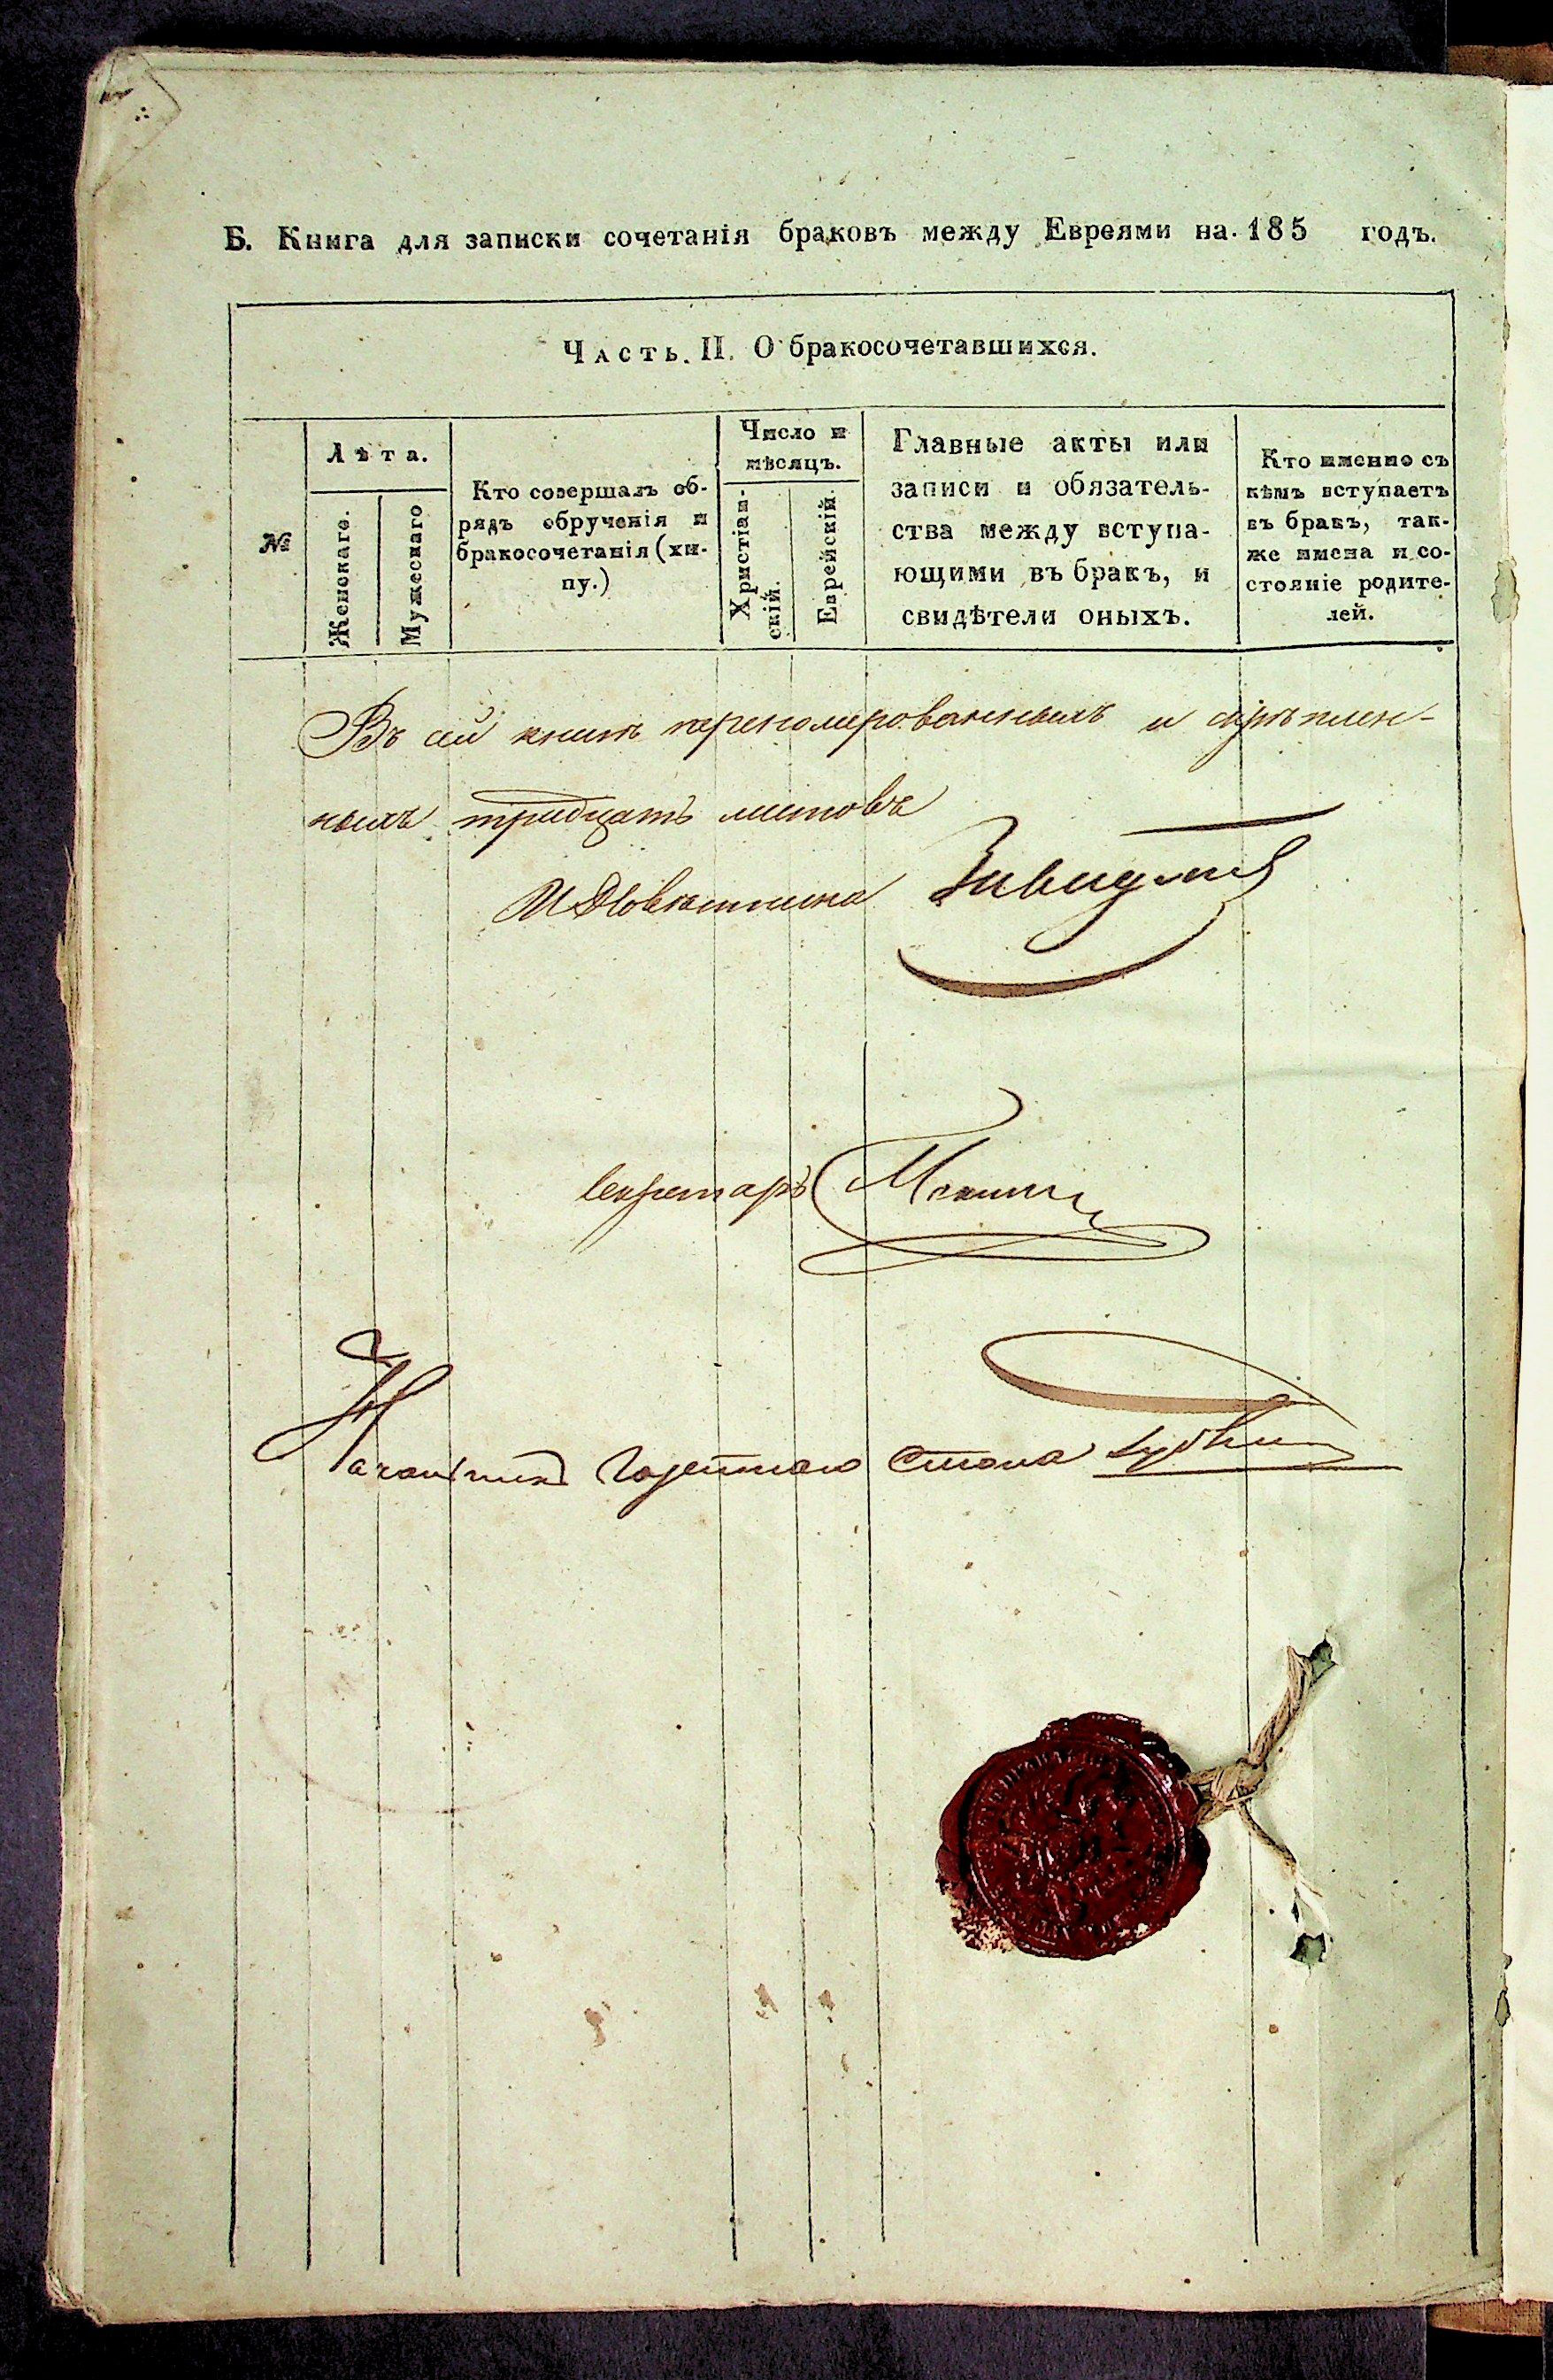 Б. Книга для записки сочетанія браковъ между Евреями на 185 годъ.
Часть. II. О бракосочетавшихся.
№
Лѣта.
Женскаго.
Мужескаго
Кто совершалъ об-
рядъ обрученія и
бракосочетанія (хи-
пу.)
Число и
мѣсяцъ.
Христіан-
скій.
Еврейскій.
Главные акты или
записи и обязатель-
ства между вступа-
ющими въ бракъ, и
свидѣтели оныхъ.
Кто именно съ
кѣмъ вступаетъ
въ бракъ, так-
же имена и со-
стояніе родите-
лей.
Въ сей книгѣ перенумерованныхъ и скрѣплен-
ныхъ тридцать листовъ
Секретарь
Началникъ Газетнаго Стола